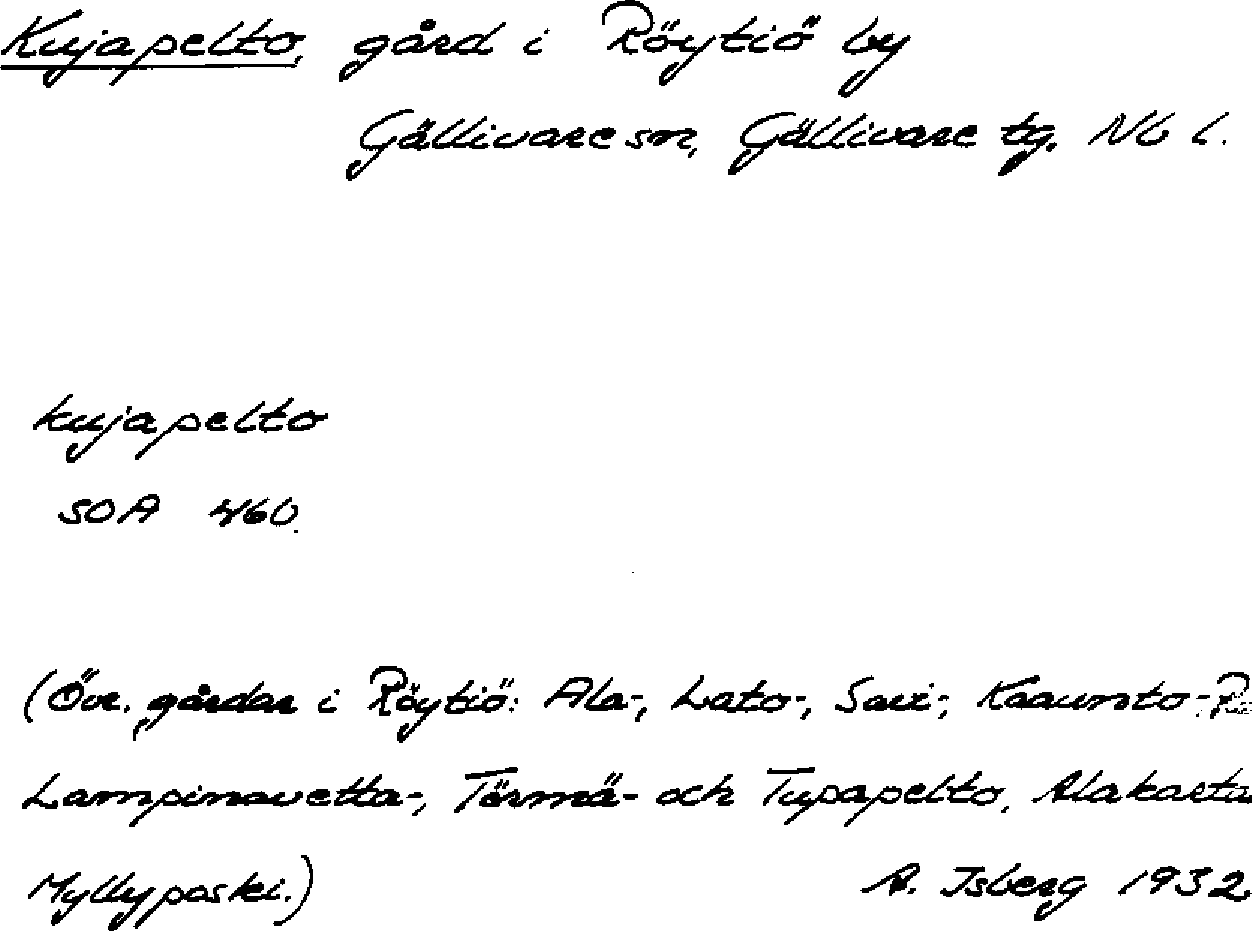 Kujapelto, gård i Röytiö by
Gällivare sn, Gällivare tg. Nb l.
kujapelto
SOA 460.
(Övr. gårdar i Röytiö: Ala-, Lato-, Sari-,
Lampinavetta-, Törmä- och Tupapelto, Alakarta
Myllyposki.)
A. Isberg 1932